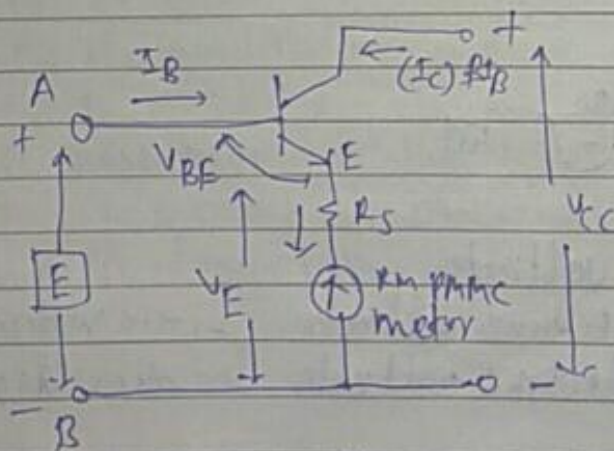 +
I_B
A
(I_C) βI_B
+
V_BE
E
R_S
V_CC
E
V_E
RM PMMC
meter
-
-
B